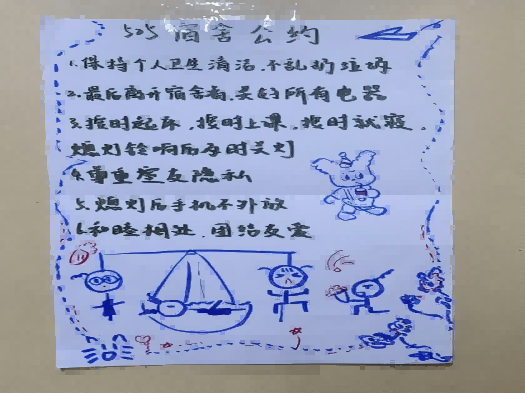 505宿舍公约
1.保持个人卫生清洁,不乱扔垃圾
2.最后离开宿舍者,关的所有电器
3.按时起床,按时上课,按时就寝,
熄灯铃响后及时关灯
4.尊重室友隐私
5.熄灯后手机不外放
6.和睦相处,团结友爱